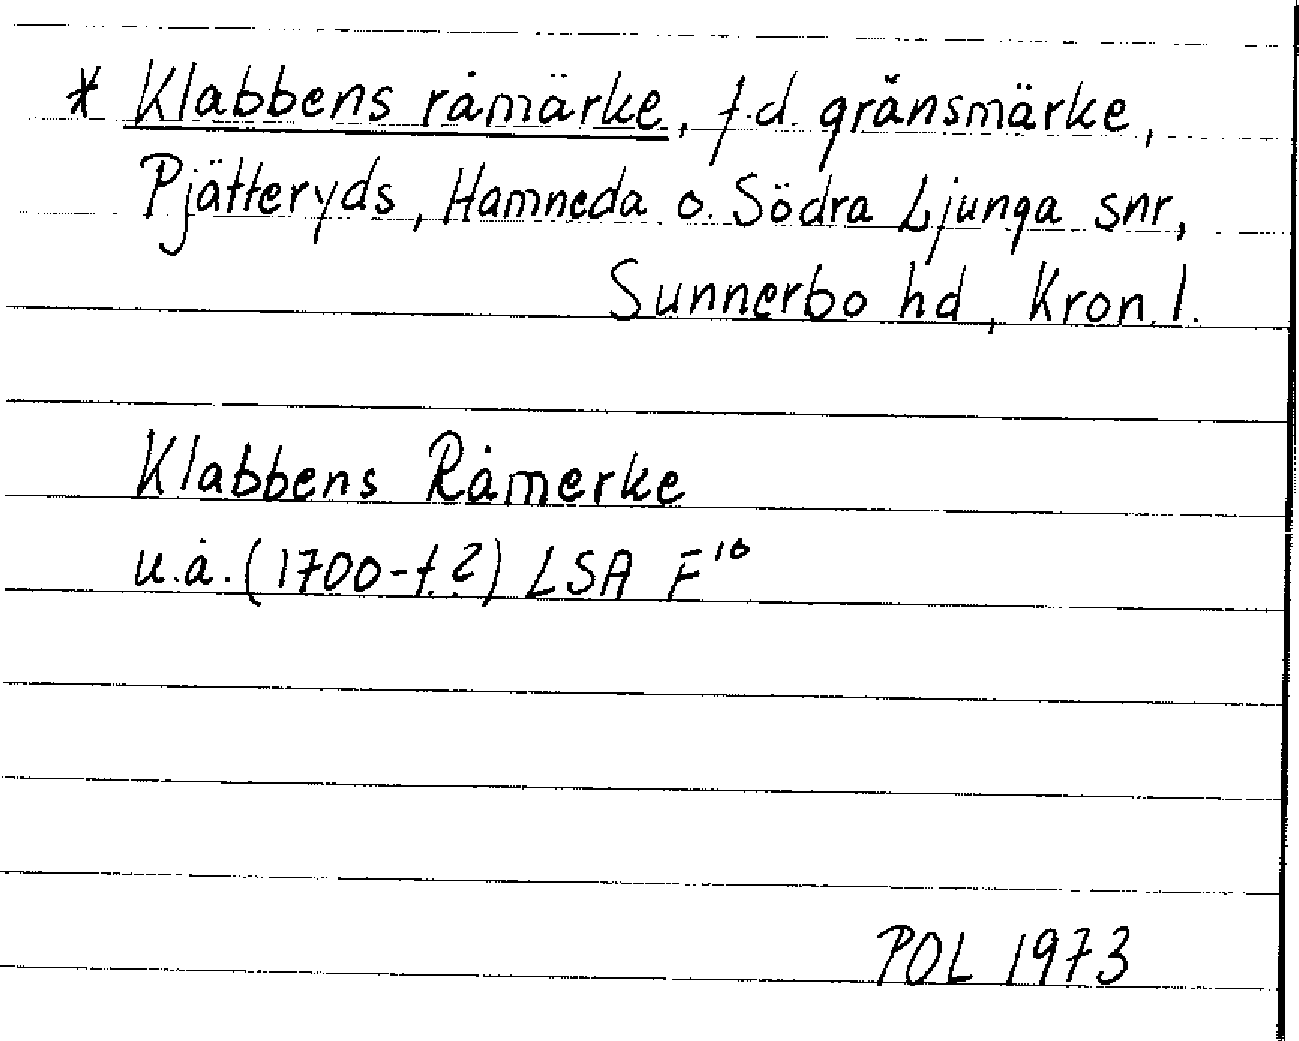 * Klabbens råmärke, f.d. gränsmärke,
Pjätteryds, Hamneda o. Södra Ljunga snr,
Sunnerbo hd, Kron. l.
Klabbens Råmerke
u.å. (1700-t.?) LSA F¹⁰
POL 1973